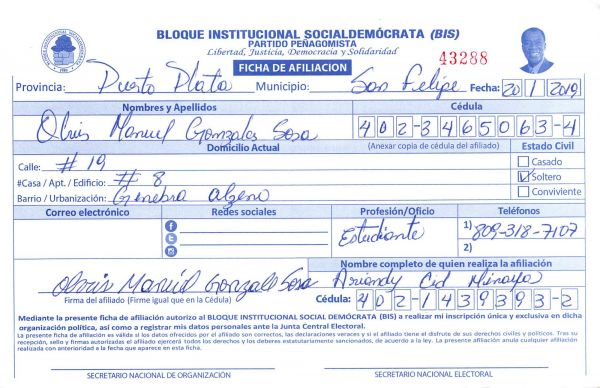 BLOQUE INSTITUCIONAL SOCIALDEMÓCRATA (BIS)
PARTIDO PEÑAGOMISTA
Libertad, Justicia, Democracia y Solidaridad
FICHA DE AFILIACION
43288
Provincia: Puerto Plata Municipio: San Felipe Fecha: 20/1/2019
Nombres y Apellidos Cédula
Manuel Gonzales Sosa 402-3465063-4
Domicilio Actual (Anexar copia de cédula del afiliado) Estado Civil
Calle: # 19 Casado
#Casa / Apt. / Edificio: # 8 Soltero
Barrio / Urbanización: Conviviente
Correo electrónico Redes sociales Profesión/Oficio Teléfonos
Estudiante 1) 809-318-7107
2)
Nombre completo de quien realiza la afiliación
Manuel Gonzale Sosa Cid Minaya
Firma del afiliado (Firme igual que en la Cédula) Cédula: 402-1439393-2
Mediante la presente ficha de afiliación autorizo al BLOQUE INSTITUCIONAL SOCIAL DEMÓCRATA (BIS) a realizar mi inscripción única y exclusiva en dicha
organización política, así como a registrar mis datos personales ante la Junta Central Electoral.
La presente ficha de afiliación es válida si los datos ofrecidos por el afiliado son correctos, las declaraciones veraces y si el afiliado tiene el disfrute de sus derechos civiles y políticos. Tras su
recepción, sello y firmas autorizadas el afiliado ejercerá todos los derechos y los deberes estatutariamente sancionados, de acuerdo a la ley. La presente afiliación anula cualquier afiliación
realizada con anterioridad a la fecha que aparece en esta ficha.
SECRETARIO NACIONAL DE ORGANIZACIÓN SECRETARIO NACIONAL ELECTORAL